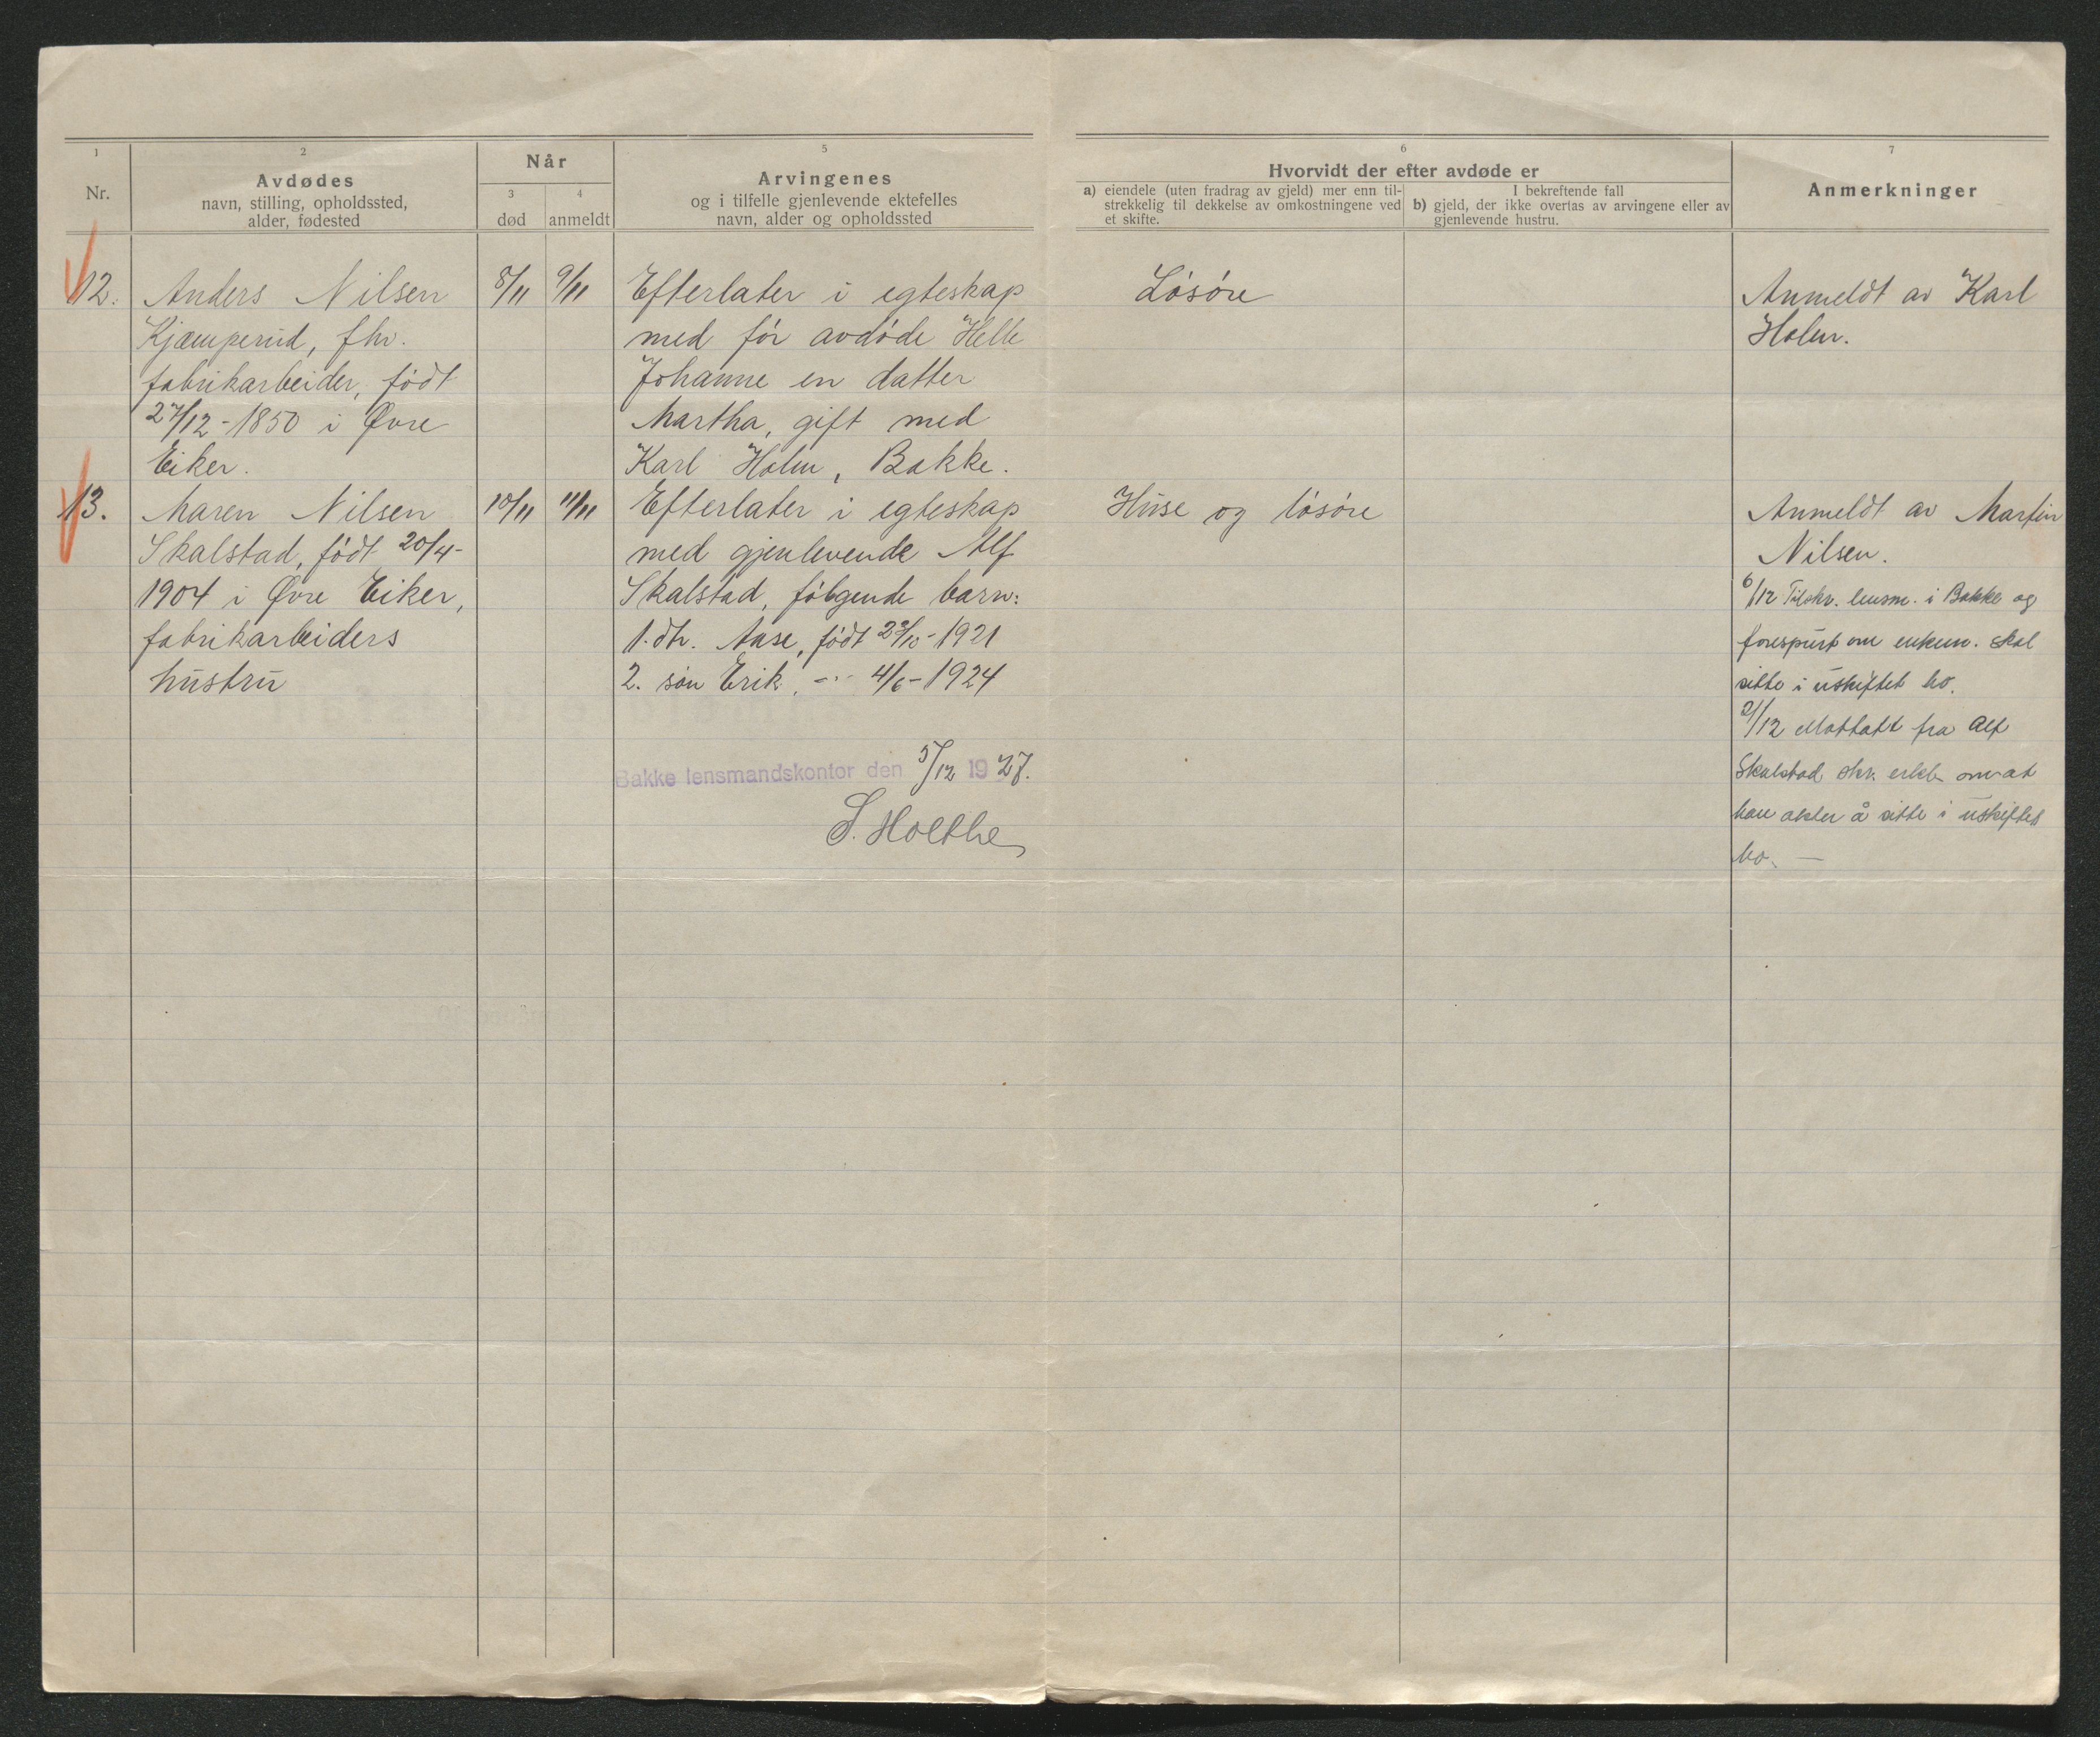 1
Nr.
2
Avdødes
navn, stilling, opholdssted,
alder, fødested
Når
3
død
4
anmeldt
5
Arvingenes
og i tilfelle gjenlevende ektefelles
navn, alder og opholdssted
6
Hvorvidt der efter avdøde er
a) eiendele (uten fradrag av gjeld) mer enn til-
strekkelig til dekkelse av omkostningene ved
et skifte.
I bekreftende fall
b) gjeld, der ikke overtas av arvingene eller av
gjenlevende hustru.
7
Anmerkninger
12.
Anders Nilsen
Kjæmperud, fhv.
fabrikarbeider, født
27/12-1850 i Øvre
Eiker.
8/11
9/11
Efterlater i egteskap
med før avdøde Helle
Johanne en datter
Martha, gift med
Karl Holm, Bakke.
Løsøre
Anmeldt av Karl
Holm.
13.
Maren Nilsen
Skalstad, født 20/4-
1904 i Øvre Eiker,
fabrikarbeiders
hustru
10/11
11/11
Efterlater i egteskap
med gjenlevende Alf
Skalstad, følgende barn:
1. dtr. Aase, født /10-1921
2. søn Erik, -"- 4/6-1924
Huse og løsøre
Anmeldt av Martin
Nilsen.
6/12 Tilskr. lensm. i Bakke og
forespurt om enkem. skal
sitte i uskiftet bo.
/12 Mottatt fra Alf
Skalstad skr. erkl. om at
han akter å sitte i uskiftet
bo. —
Bakke lensmandskontor den 5/12 1927.
S. Holthe